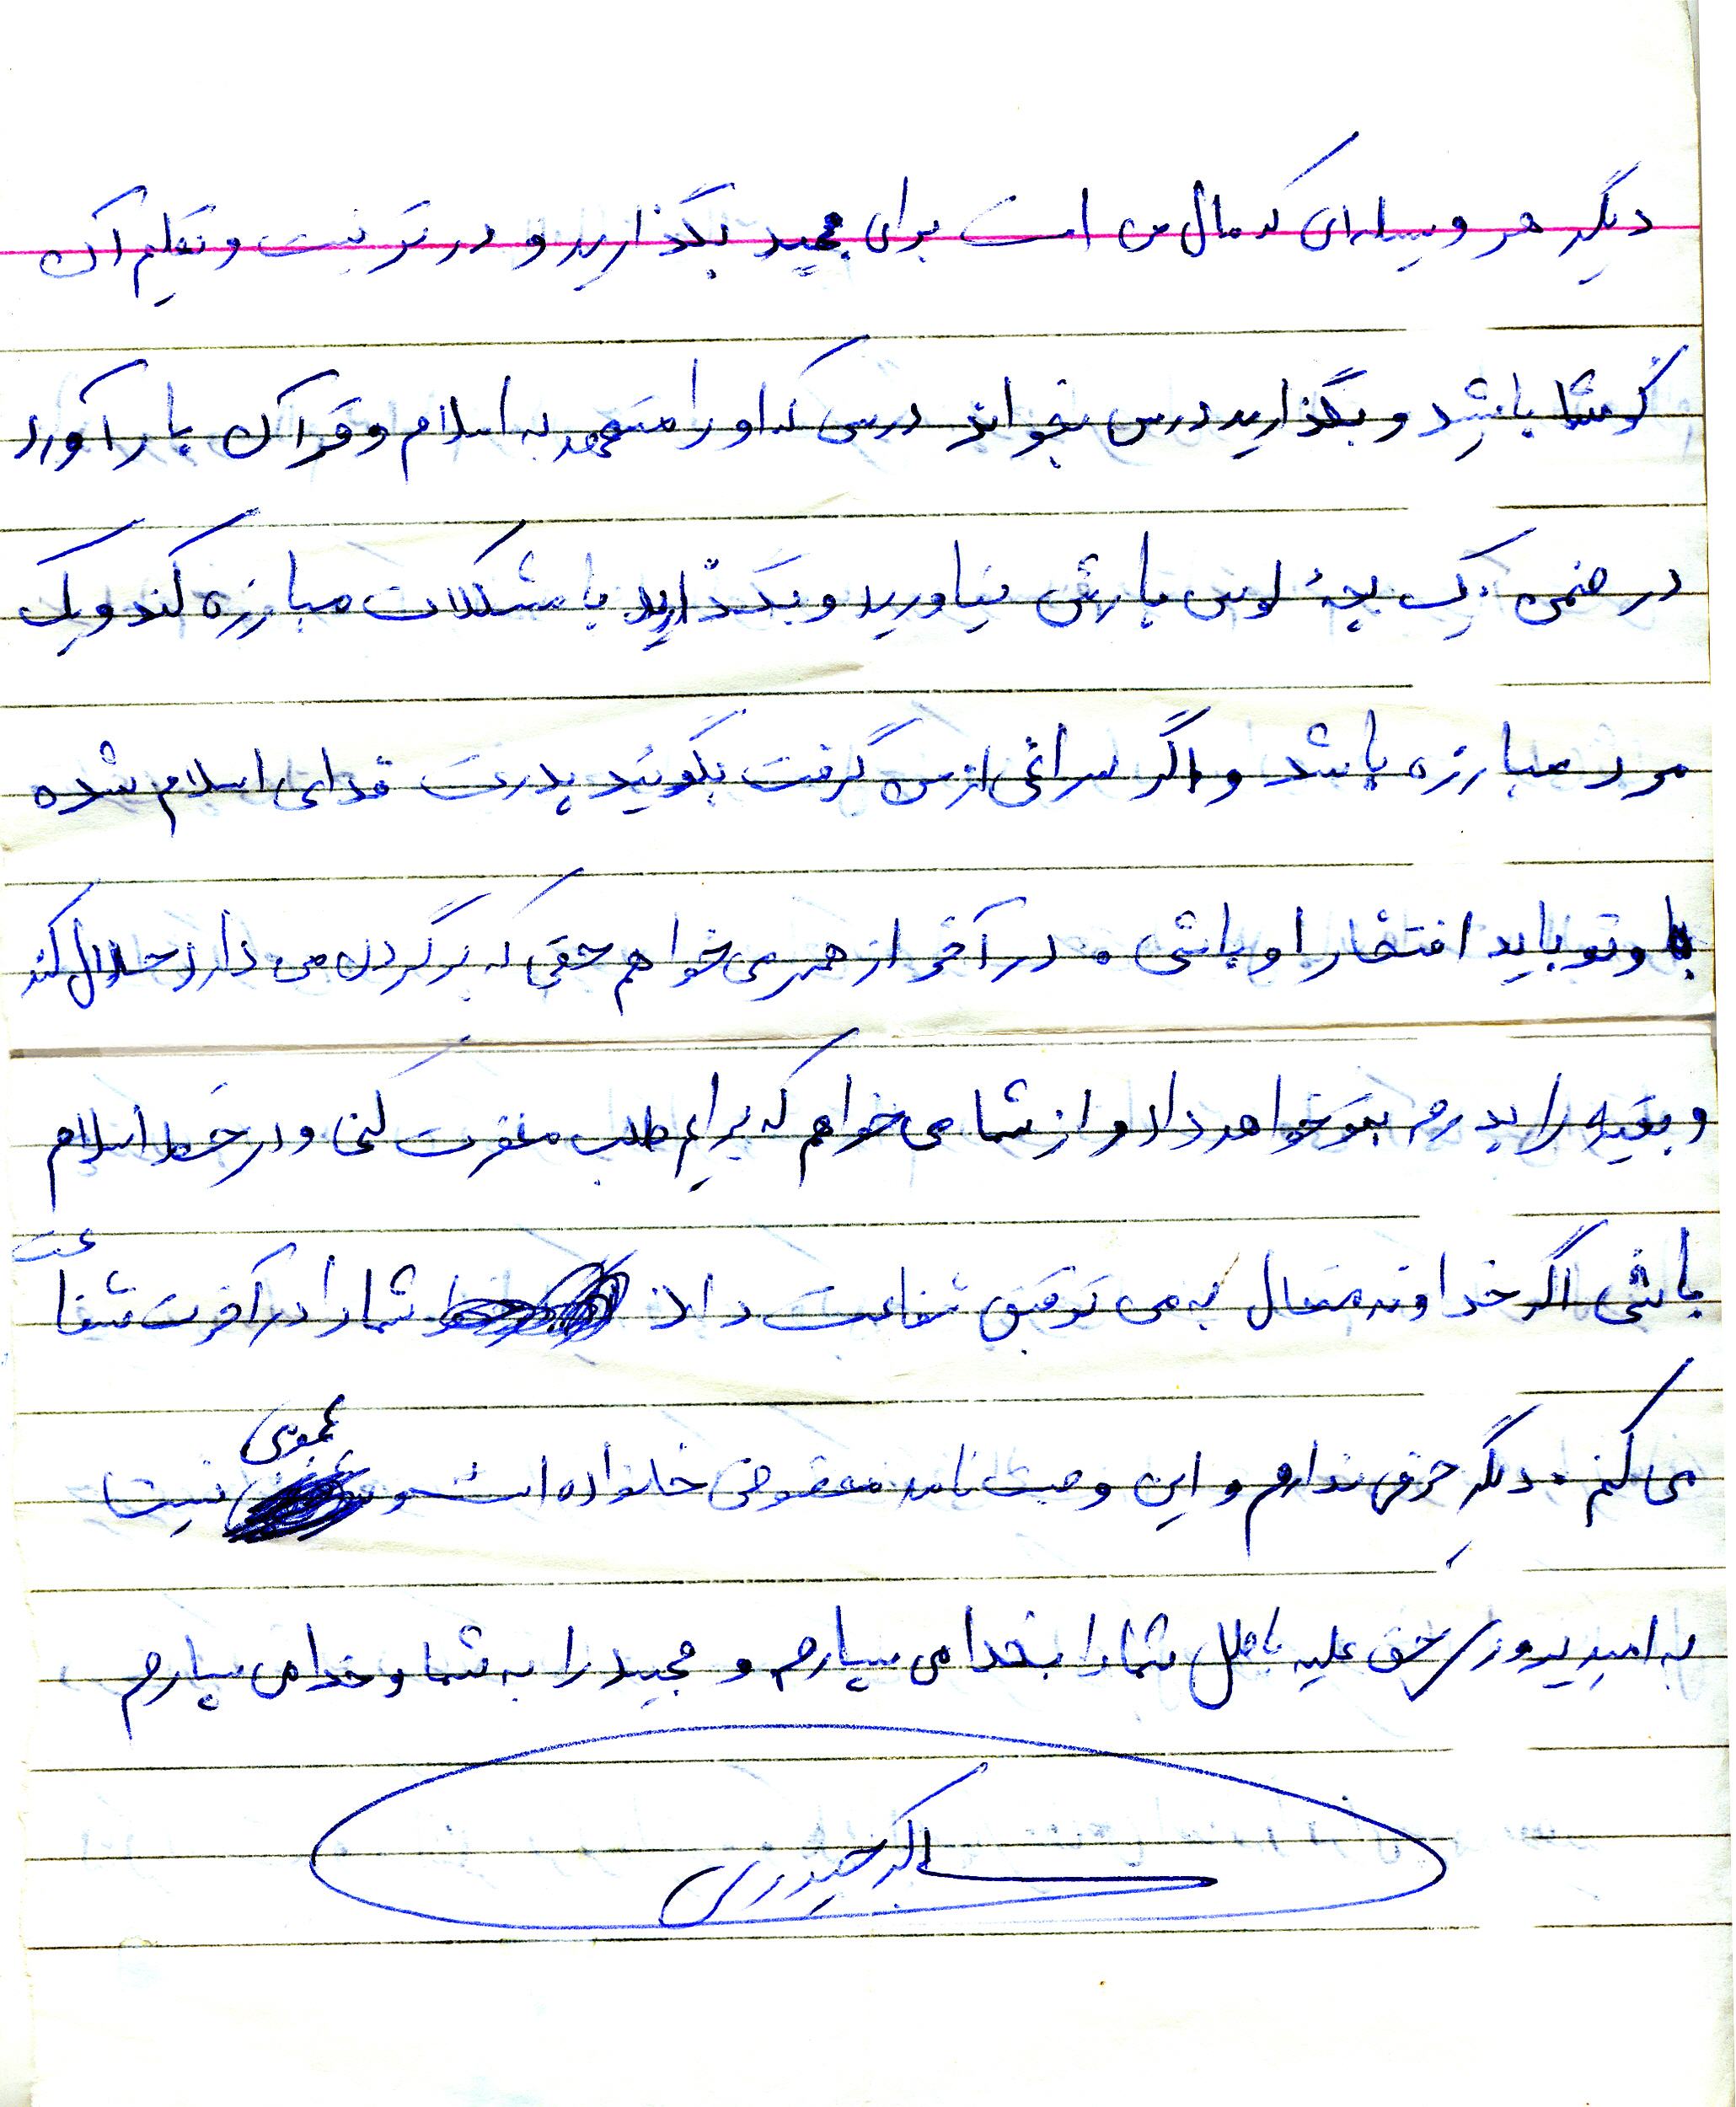 دیگر هر وسیله‌ای که مال من است برای مجید بگذارید و در تربیت و تعلیم آن
کوشا باشید و بگذارید درس بخواند درسی که او را متعهد به اسلام و قرآن بار آورد
در ضمن یک بچهٔ لوس بارش نیاورید و بگذارید با مشکلات مبارزه کند و یک
مرد مبارزه باشد و اگر سراغی از من گرفت بگوئید پدرت فدای اسلام شده
و تو باید افتخار او باشی . در آخر از همسرم می‌خواهم حقی که بر گردن من دارد حلال کند
و بقیه را پدرم به تو خواهد داد و از شما می‌خواهم که برایم طلب مغفرت کنی و در خط اسلام
باشی اگر خداوند متعال به من توفیق شفاعت داد شما را در آخرت شفاعت
می کنم . دیگر حرفی ندارم و این وصیت نامه مخصوص خانواده است و عمومی نیست
به امید پیروزی حق علیه باطل شما را بخدا می سپارم و مجید را به شما و خدا می سپارم
اکبر حیدری